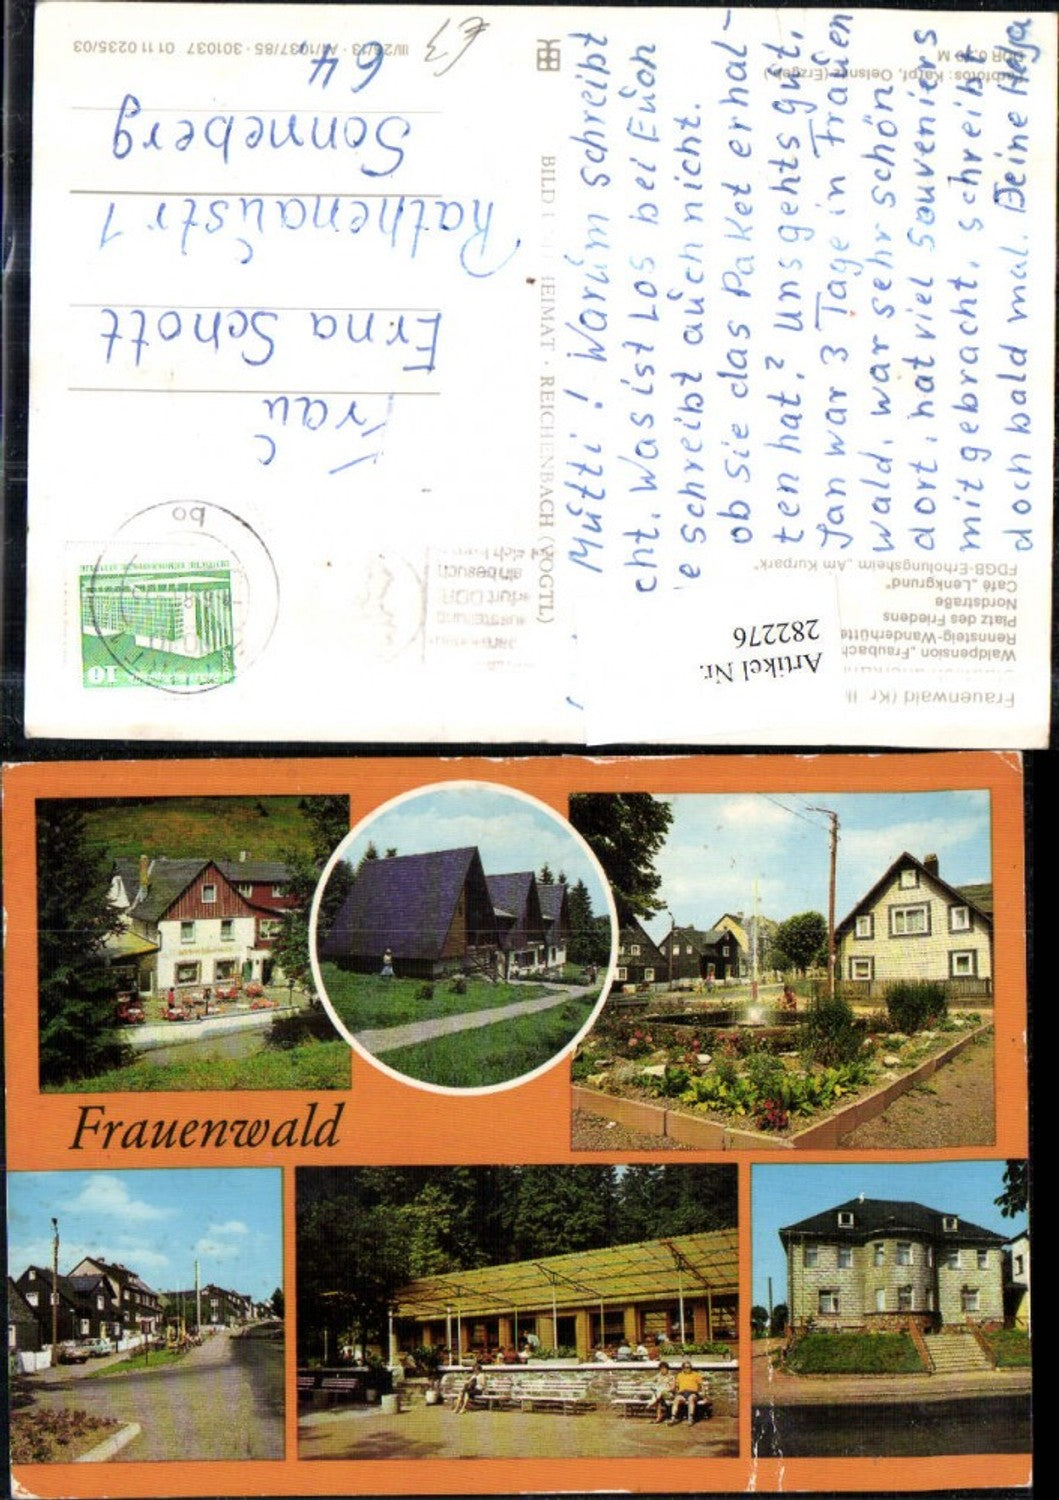 Mutti! Warum schreibt
cht. Was ist Los bei Euch
e schreibt auch nicht.
ob Sie das Paket erhal-
ten hat? Uns gehts gut.
Jan war 3 Tage in Frauen
wald, war sehr schön
dort, hat viel Souveniers
mit gebracht, schreib
doch bald mal. Deine
Frau
Erna Schott
Rathenaustr 1
Sonneberg
64
€3
III/26/13 · A1/1037/85 · 301037 01 11 0235/03
BILD HEIMAT · REICHENBACH (VOGTL)
Farbfotos: Karpf, Oelsnitz (Erzgeb.)
Frauenwald (Kr.
Waldpension „Fraubach
Rennsteig-Wanderhütte
Platz des Friedens
Nordstraße
Café „Lenkgrund“
FDGB-Erholungsheim „Am Kurpark“
Artikel Nr.
282276
10
Frauenwald